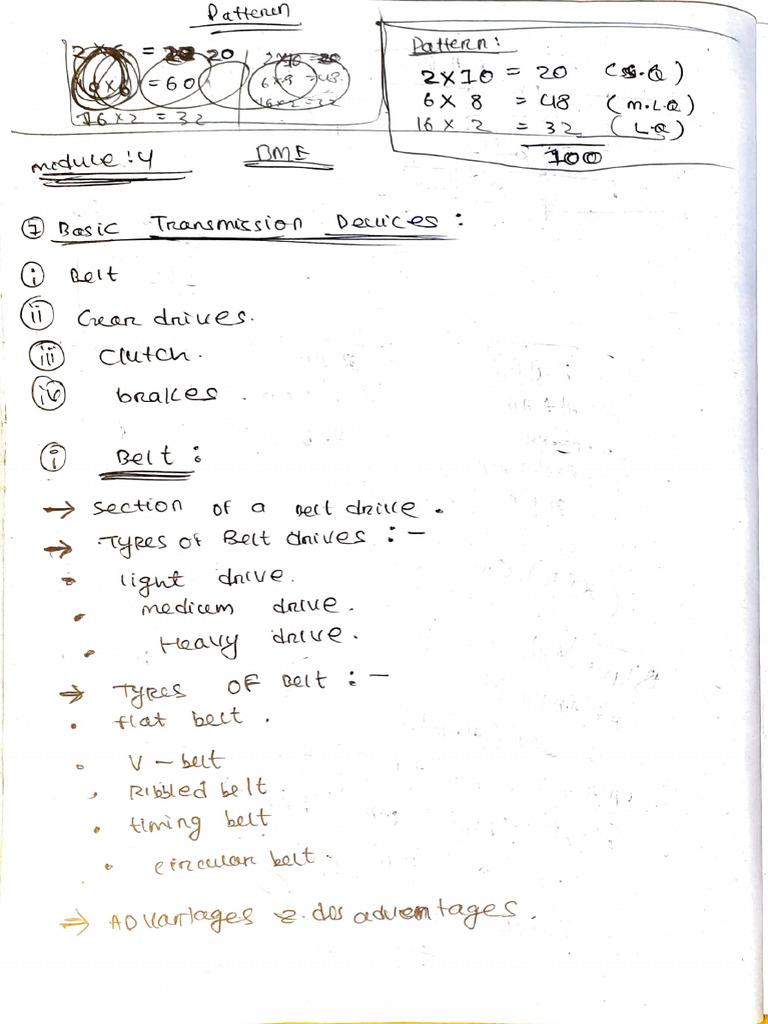 Patteren
2 × 6 = 20 20
10 × 6 = 60
16 × 2 = 32
2 × 10 = 20
6 × 8 = 48
16 × 2 = 32
Pattern :
2 × 10 = 20 (S.Q)
6 × 8 = 48 (M.L.Q)
16 × 2 = 32 (L.Q)
100
module : 4 BME
① Basic Transmission Devices :
ⓘ Belt
ⓘⓘ Gear drives.
iii Clutch.
iv brakes.
i Belt :
→ section of a Belt drive.
→ Types of Belt drives : -
• light drive.
• medium drive.
• Heavy drive.
→ Types OF Belt : -
• flat belt.
• V - belt
• Ribbed belt.
• timing belt
• circular belt.
→ ADvantages & dis adventages.